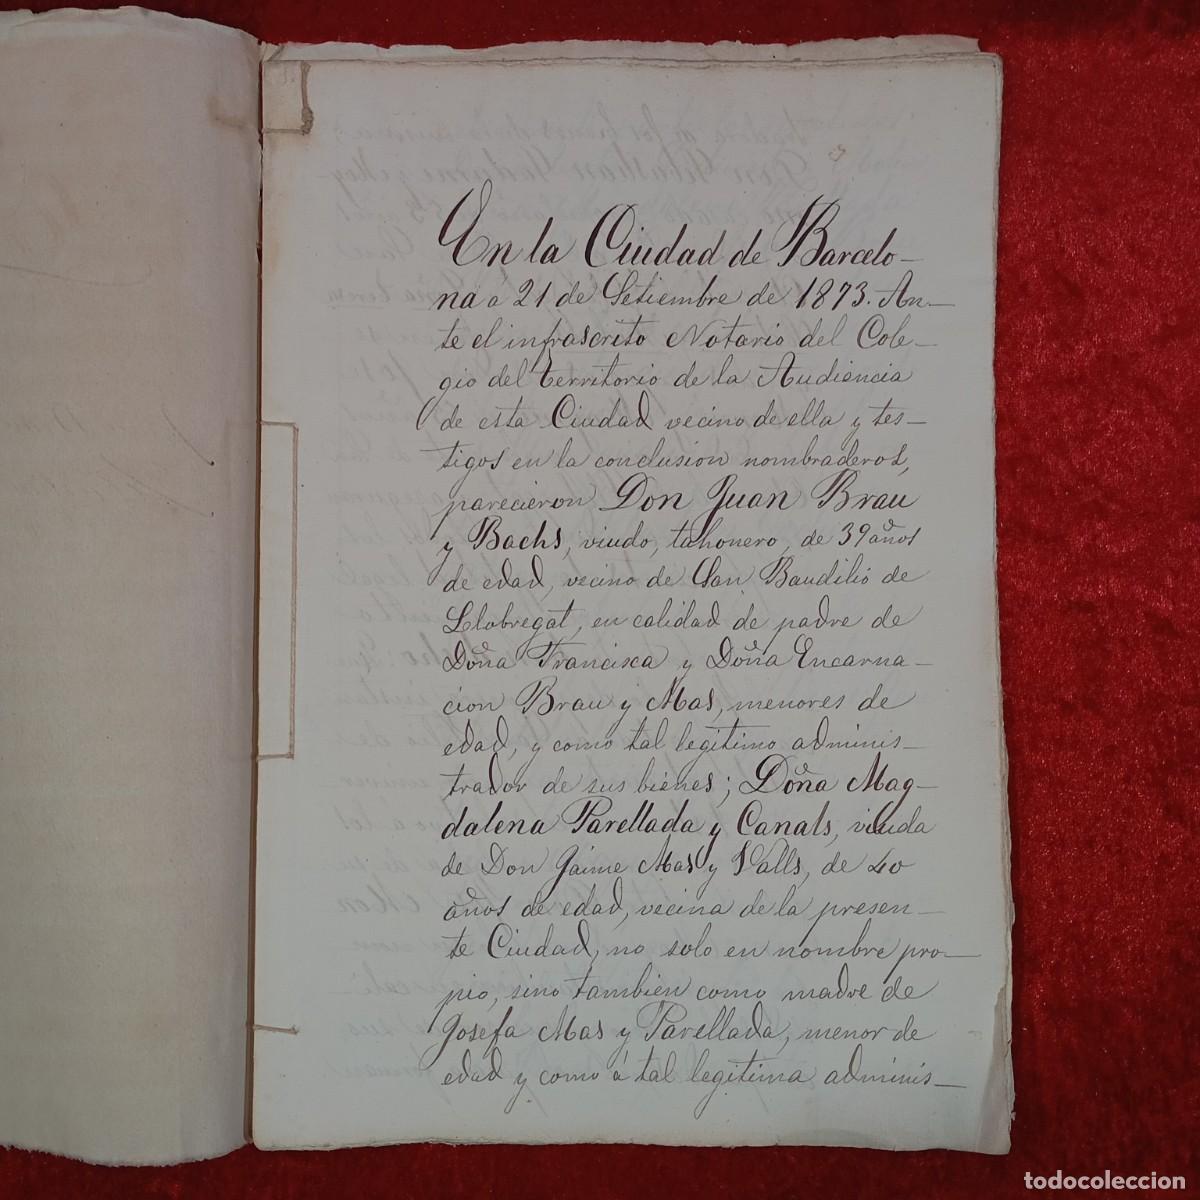 En la Ciudad de Barcelo-
na á 21 de Setiembre de 1873. An-
te el infrascrito Notario del Cole-
gio del territorio de la Audiencia
de esta Ciudad vecino de ella y tes-
tigos en la conclusion nombraderos,
parecieron Don Juan Brau
y Bachs, viudo, tahonero, de 39 años
de edad, vecino de San Baudilio de
Llobregat, en calidad de padre de
Doña Francisca y Doña Encarna-
cion Brau y Mas, menores de
edad, y como tal legitimo adminis-
trador de sus bienes; Doña Mag-
dalena Parellada y Canals, viuda
de Don Jaime Mas y Valls, de 40
años de edad, vecina de la presen-
te Ciudad, no solo en nombre pro-
pio, sino tambien como madre de
Josefa Mas y Parellada, menor de
edad y como á tal legitima adminis-
todocoleccion